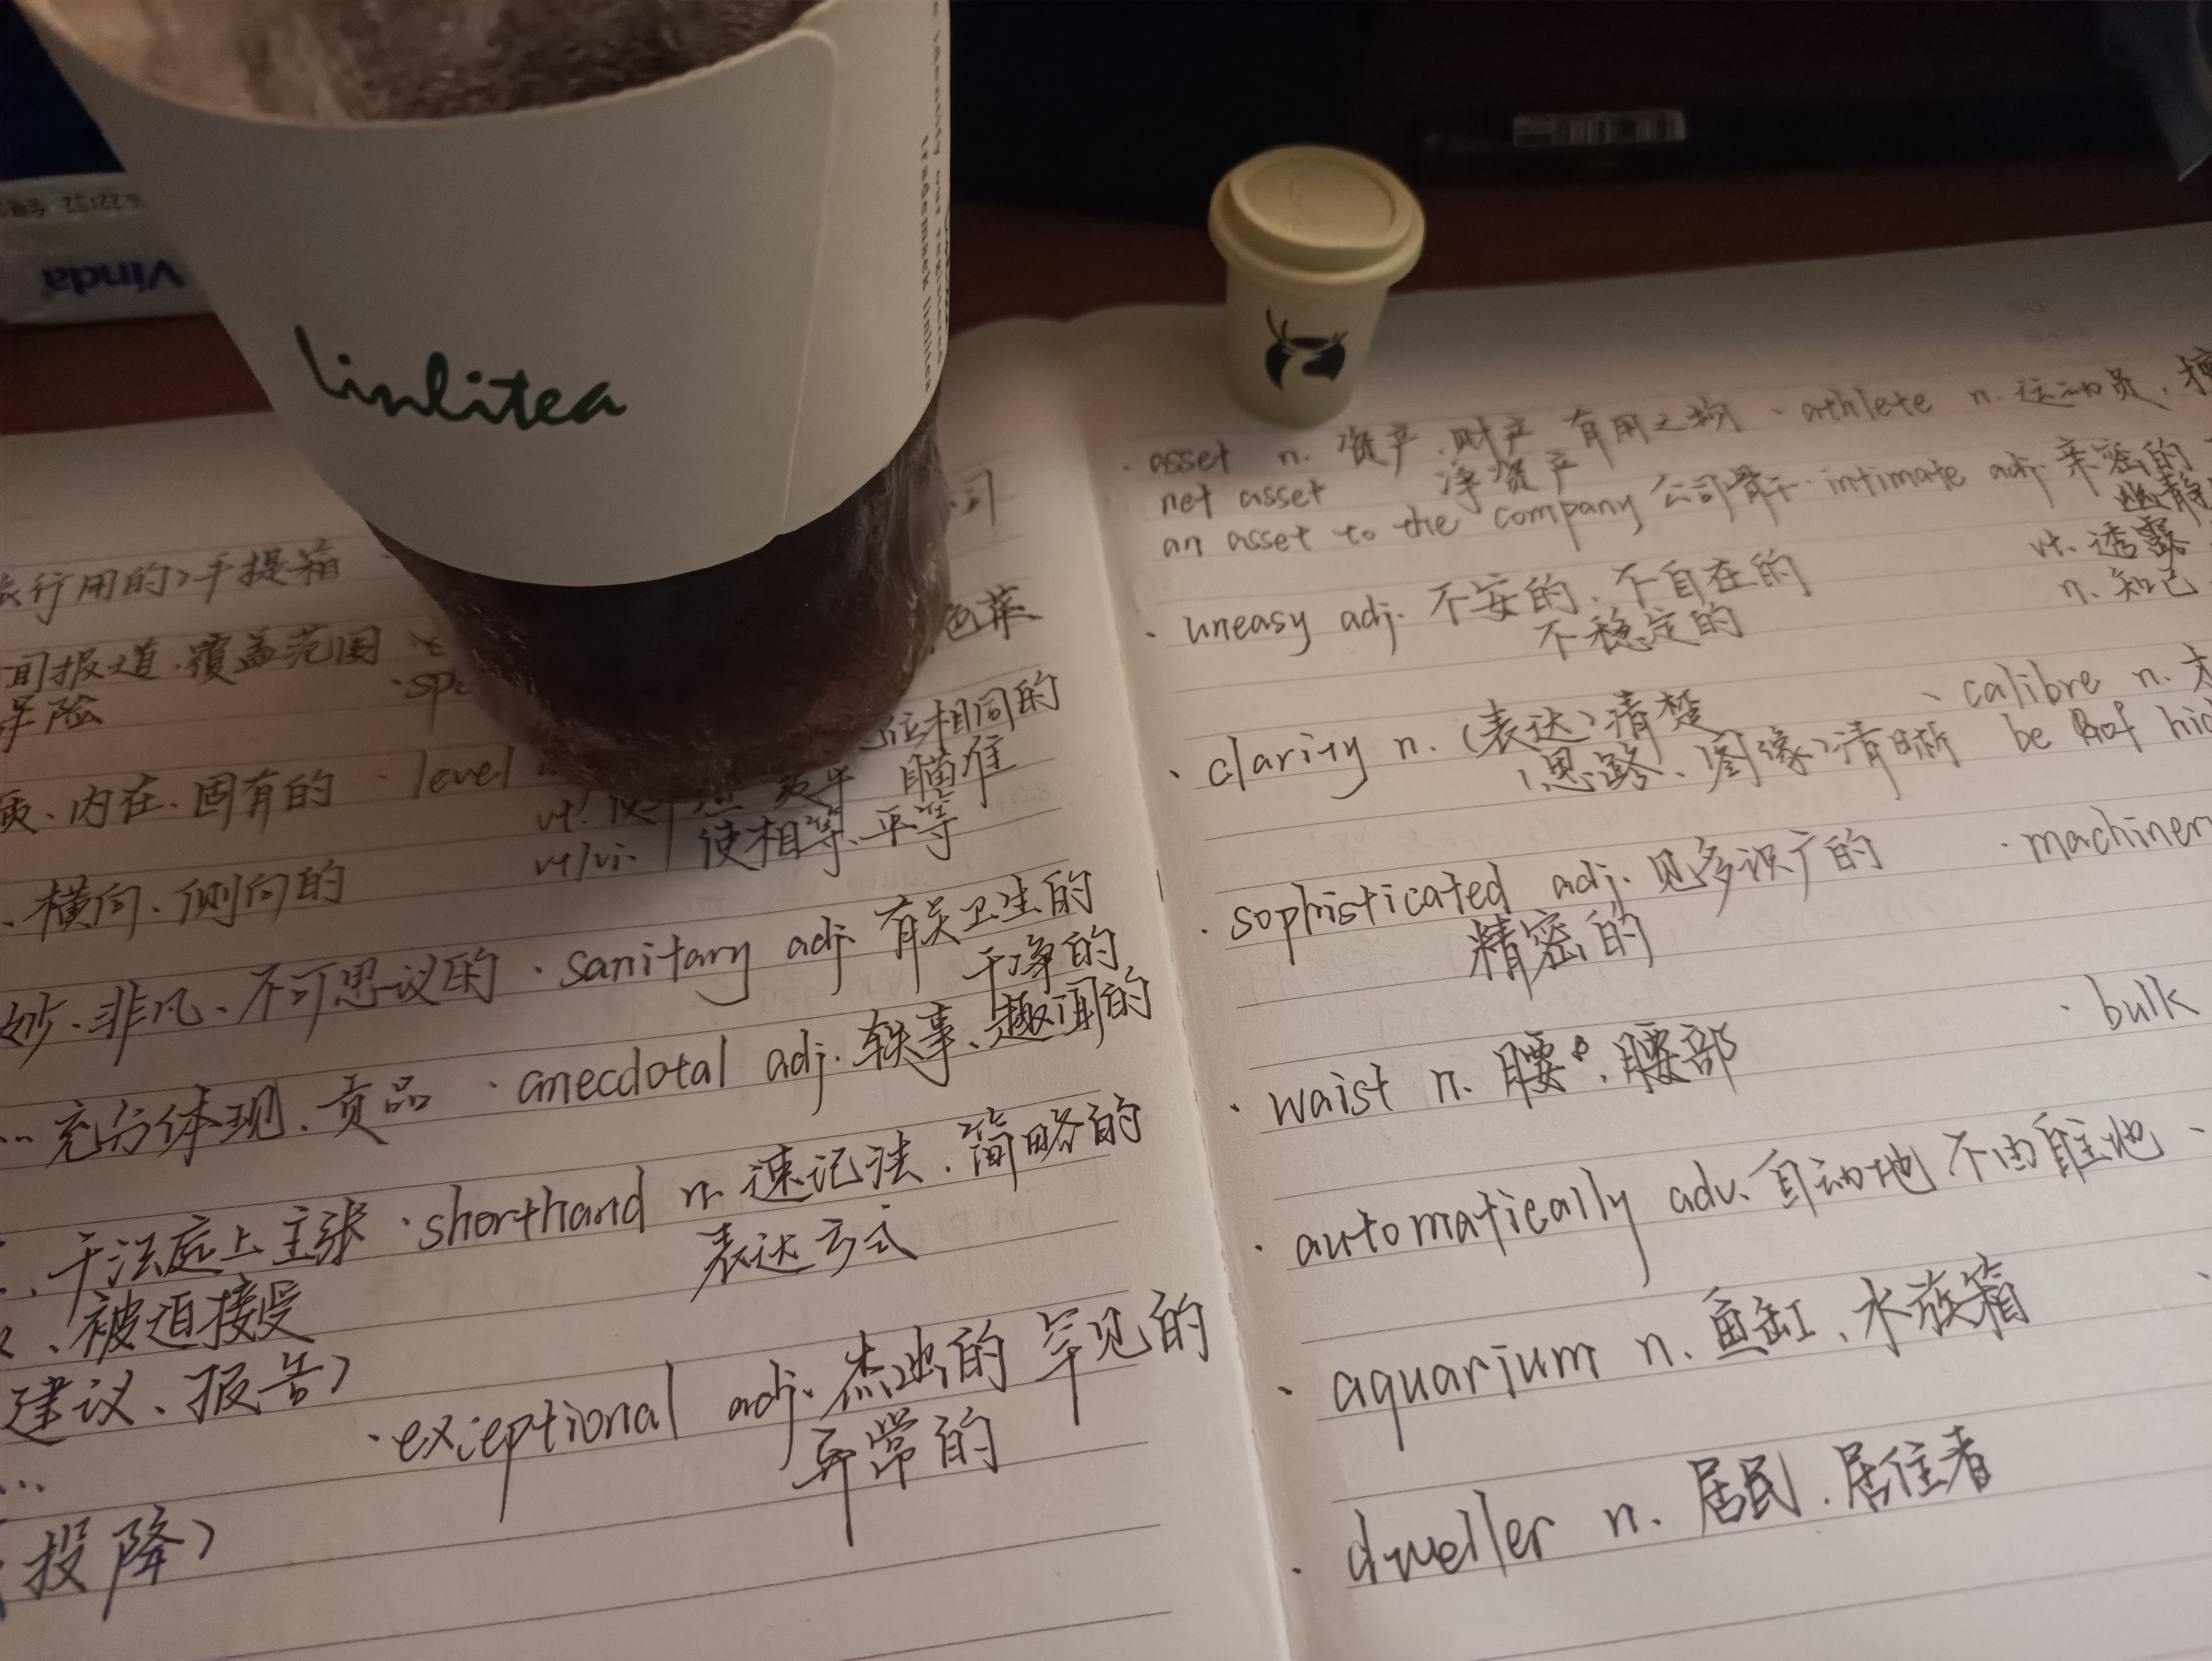 Vinda
linlitea
trademark linlitea
行用的)手提箱
闻报道、覆盖范围
保险
质、内在、固有的
· level
位相同的
瞄准
vt/vi. 使相等、平等
、横向、侧向的
妙、非凡、不可思议的 · sanitary adj. 有关卫生的
干净的
… 充分体现、贡品 · anecdotal adj. 轶事、趣闻的
、于法庭上主张 · shorthand n. 速记法、简略的
表达方式
、被迫接受
建议、报告)
· exceptional adj. 杰出的 罕见的
异常的
...
投降)
· asset n. 资产、财产 有用之物 · athlete n. 运动员、
net asset 净资产
an asset to the company 公司骨干 · intimate adj. 亲密的
幽静
vt. 透露
n. 知己
· uneasy adj. 不安的、不自在的
不稳定的
· clarity n. (表达)清楚
(思路、图像)清晰
· calibre n.
be of
· sophisticated adj. 见多识广的 · machiner
精密的
· bulk
· waist n. 腰、腰部
· automatically adv. 自动地 不由自主地
· aquarium n. 鱼缸、水族箱
· dweller n. 居民、居住者